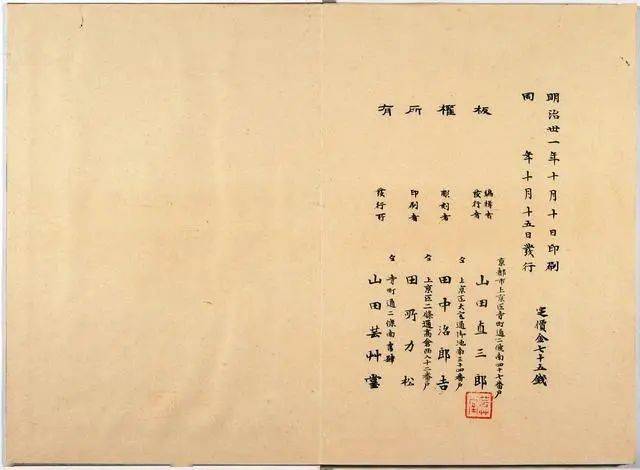 明治丗一年十月十日印刷
同　年十月十五日發行
定價金七十五錢
板權所有
京都市上京區寺町通二條南四十七番戸
編輯者
發行者
山田直三郎
仝 上京區大宮通御池南三十四番戸
彫刻者 田中治郎吉
仝 上京區二條通高倉西入十二番戸
印刷者 田野力松
仝 寺町通二條南書肆
發行所 山田芸艸堂